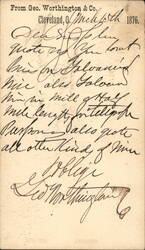 From Geo. Worthington & Co.
Cleveland, O., Mch 6th 1876.
Dear Sir Please
quote us the lowest
price on Galvanized
Wire also Galvan
in mill & Half
mile lengths for Telegraph
Purposes also quote
all other kinds of Wire
Oblige
Geo Worthington & Co